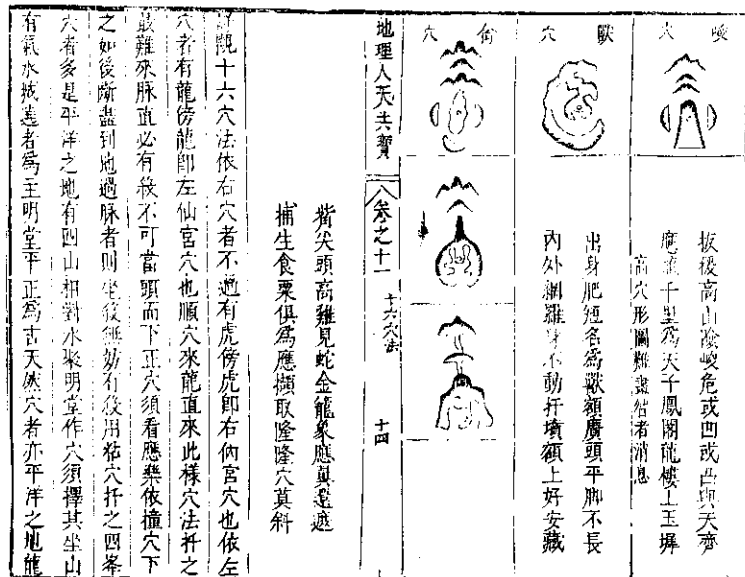 穴
高山險峻危或凹或凸與天齊
龍千里為天子鳳閣龍樓上玉墀
高穴形圖難盡結者消息
獸穴
出身肥短名為獸額廣頭平脚不長
內外綱羅身不動扦墳額上好安藏
穴
觜尖頭高難見蛇金籠象應莫遲
捕生食粟俱為應擷取隆隆穴莫斜
地理人天共寶 卷之十一 十六穴法 十四
觀十六穴法依右穴者不過有虎傍虎卽右仙宮穴也依左
穴者有龍傍龍卽左仙宮穴也順穴來龍直來此樣穴法扦之
最難來脉直必有殺不可當頭而下正穴須看應樂依撞穴下
之如後斷盡到地過脉者則坐後無妨有殺用粘穴扦之四峯
穴者多是平洋之地有四山相對水聚明堂作穴須擇其坐山
有氣水城遶者為主明堂平正為吉天然穴者亦平洋之地龍